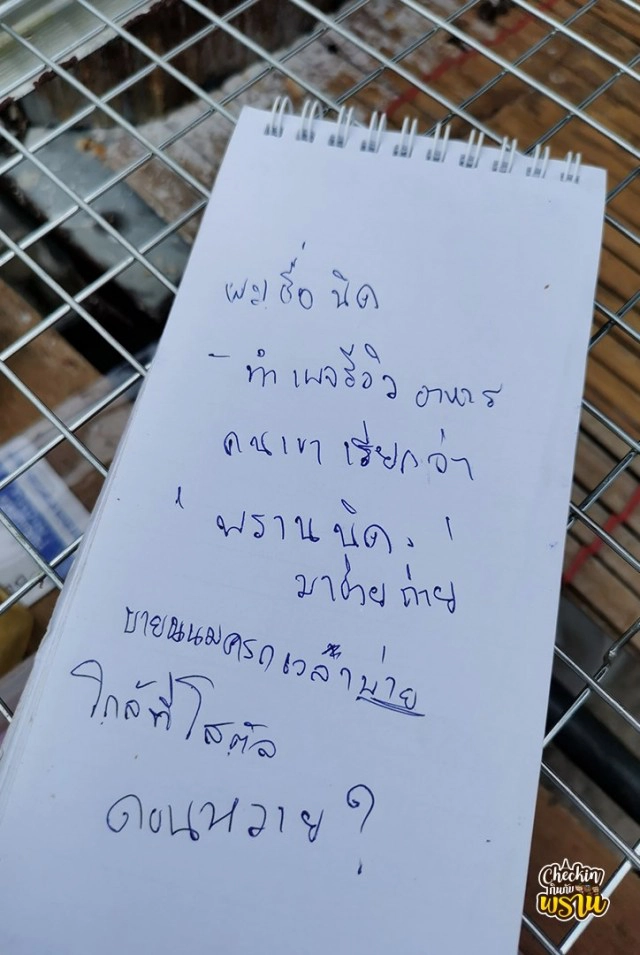 ผมชื่อ นิด
- ทำ เพจรีวิว อาหาร
คนเขา เรียกว่า
" พรานนิด. "
ถ่าย
ขายขนมครกเวลาบ่าย
ใกล้ที่โลตัส
ดอนหวาย ?
Checkin
กินกับ
พราน